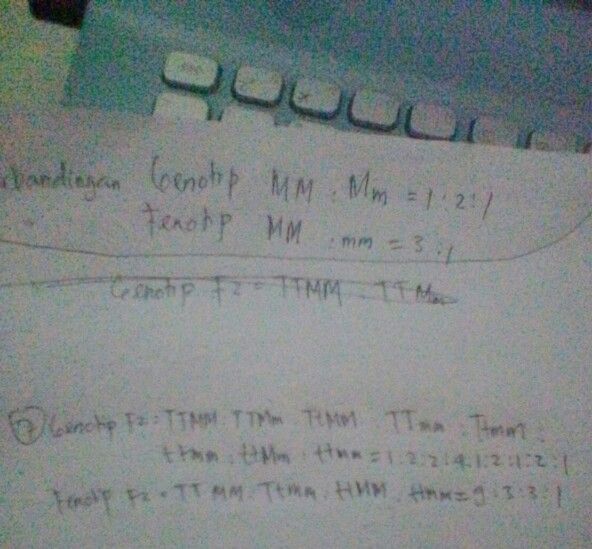 rbandingan Genotip MM : Mm = 1 : 2 : 1
Fenotip MM : mm = 3 : 1
Genotip F2 = TTMM : TTMm
7 Genotip F2 = TTMM : TTMm : TtMM : TTmm : Ttmm :
ttmm : ttMm : ttmm = 1 : 2 : 2 : 4 : 1 : 2 : 1 : 2 : 1
Fenotip F2 = TTMM : Ttmm : ttMM : ttmm = 9 : 3 : 3 : 1